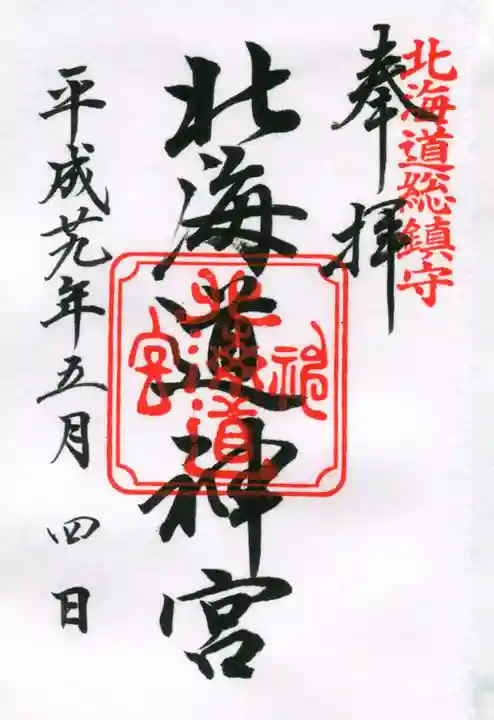 北海道総鎮守
奉拝
北海道神宮
北海道
神
宮
平成廿九年五月 四日